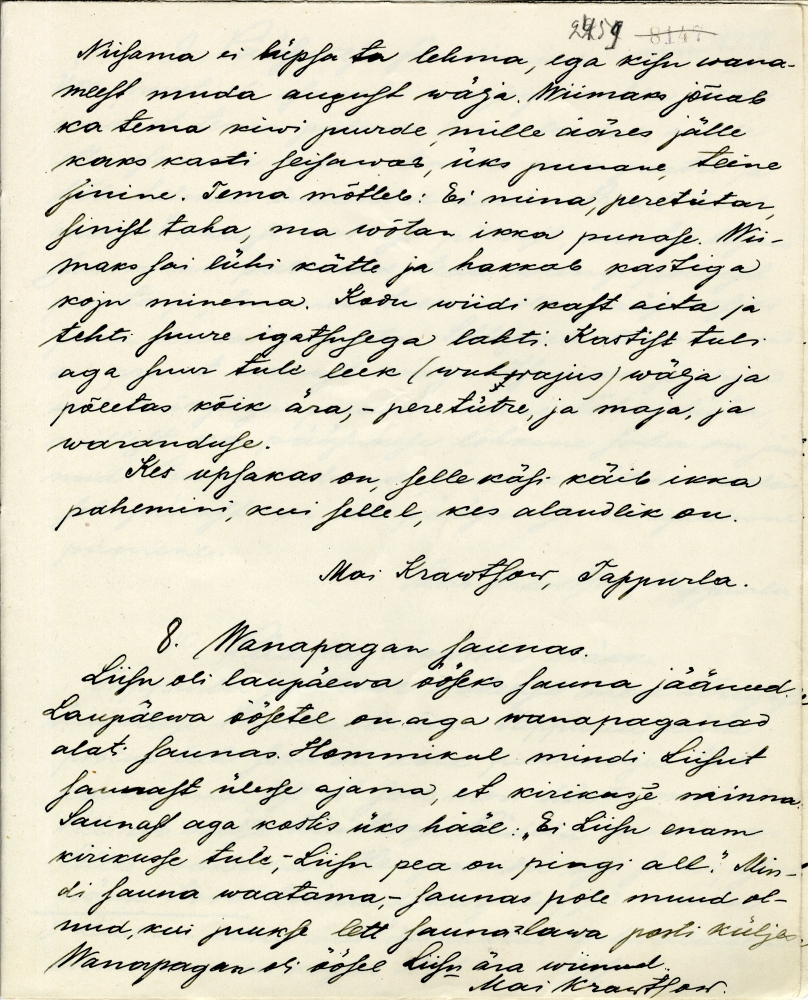 2459 8147
Niisama ei lüpsa ta lehma, ega kisu wana-
meest muda august wälja. Wiimaks jõuab
ka tema kiwi juurde, mille ääres jälle
kaks kasti seisawad, üks punane, teine
sinine. Tema mõtleb: Ei mina, peretütar,
sinist taha, ma wõtan ikka punase. Wii-
maks sai lühi kätte ja hakkab kastiga
koju minema. Kodu wiidi kast aita ja
tehti suure igatsusega lahti. Kastist tuli
aga suur tule leek (wulwrajus) wälja ja
põletas kõik ära, - peretütre, ja maja, ja
waranduse.
Kes upsakas on, selle käsi käib ikka
pahemini, kui sellel, kes alandlik on.
Mai Krawtsow, Tappurla.
8. Wanapagan saunas.
Liisu oli laupäewa ööseks sauna jäänud.
Laupäewa öösetel on aga wanapaganad
alati saunas. Hommikul mindi Liisut
saunast ülesse ajama, et kirikusse minna.
Saunast aga kostis üks hääl: „Ei Liisu enam
kirikusse tule, - Liisu pea on pingi all." Min-
di sauna waatama, - saunas pole muud ol-
nud, kui juukse lett sauna-lawa posti küljes.
Wanapagan oli öösel Liisu ära wiinud.
Mai Krawtsow.